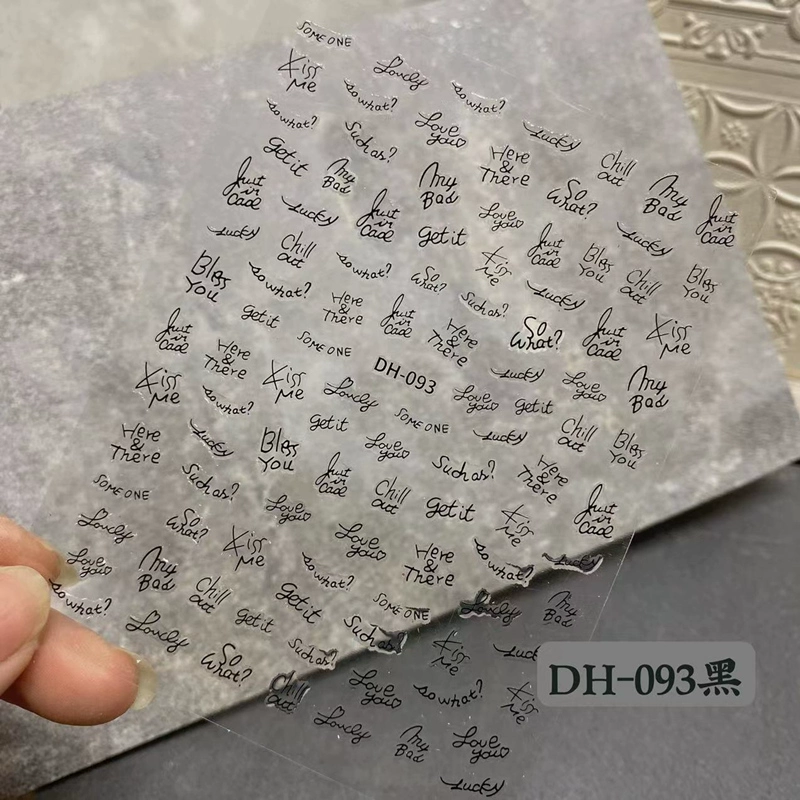 SOMEONE
Kiss
Me
Lovely
so what?
so what?
Such as?
Love
you
Lucky
Get it
My
Bad
My
Bad
Here
&
There
Chill
out
So
what?
My
Bad
Just
in
Case
Just
in
Case
Lucky
Just
in
Case
Love
you
Get it
Lucky
Lucky
Chill
out
so what?
Kiss
Me
Just
in
Case
Bless
You
Chill
out
Bless
You
Bless
You
so what?
So
what?
Such as?
Lucky
Get it
Here
&
There
Just
in
Case
Here
&
There
So
what?
Just
in
Case
Kiss
Me
Just
in
Case
Here
&
There
SOMEONE
DH-093
Lucky
Love
you
My
Bad
Kiss
Me
so what?
Kiss
Me
Lovely
Love
you
Get it
Get it
SOMEONE
Lucky
Chill
out
Bless
You
Here
&
There
Lucky
Bless
You
Love
you
Such as?
Here
&
There
SOMEONE
Such as?
Just
in
Case
Chill
out
Get it
Kiss
Me
Just
in
Case
Lovely
So
what?
Love
you
Kiss
Me
Love
you
Here
&
There
so what?
Lucky
Love
you
My
Bad
Chill
out
so what?
Get it
SOMEONE
Lovely
My
Bad
so what?
Lovely
Get it
Such as?
Such as?
Kiss
Me
Lucky
So
what?
Chill
out
Love
you
so what?
Kiss
Me
DH-093黑
Lovely
My
Bad
Love
you
Lucky